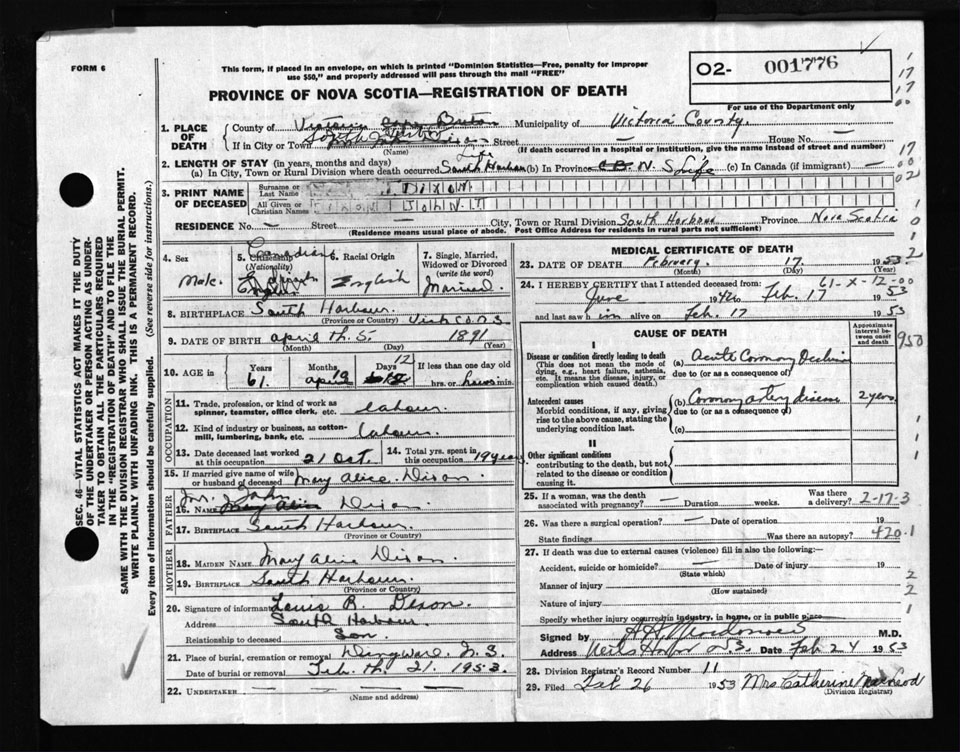 FORM 6
This form, if placed in an envelope, on which is printed "Dominion Statistics—Free, penalty for improper
use $50," and properly addressed will pass through the mail "FREE"
O2- 001776
PROVINCE OF NOVA SCOTIA—REGISTRATION OF DEATH
For use of the Department only
1. PLACE OF DEATH
County of Victoria Cape Breton Municipality of Victoria County.
If in City or Town Street — House No. —
(Name) (If death occurred in a hospital or institution, give the name instead of street and number)
2. LENGTH OF STAY (in years, months and days)
(a) In City, Town or Rural Division where death occurred South Harbour (b) In Province N.S Life (c) In Canada (if immigrant) —
3. PRINT NAME OF DECEASED
Surname or Last Name DIXON
All Given or Christian Names JOHN
RESIDENCE No. — Street — City, Town or Rural Division South Harbour Province Nova Scotia
(Residence means usual place of abode. Post Office Address for residents in rural parts not sufficient)
4. Sex Male
5. Citizenship (Nationality) Canadian
6. Racial Origin English
7. Single, Married, Widowed or Divorced (write the word) Married
8. BIRTHPLACE South Harbour Vict Co. N.S
(Province or Country)
9. DATE OF BIRTH april th. 5. 1891
(Month) (Day) (Year)
10. AGE in Years 61 Months Days 12 If less than one day old
hrs. or min.
OCCUPATION
11. Trade, profession, or kind of work as spinner, teamster, office clerk, etc. labour
12. Kind of industry or business, as cotton-mill, lumbering, bank, etc. labour
13. Date deceased last worked at this occupation 21 Oct.
14. Total yrs. spent in this occupation 19 years
15. If married give name of wife or husband of deceased Mary Alice Dixon
FATHER
16. Name Mr. John Dixon
17. Birthplace South Harbour
(Province or Country)
MOTHER
18. Maiden Name Mary Alice Dixon
19. Birthplace South Harbour
(Province or Country)
20. Signature of informant Louis R. Dixon
Address South Harbour
Relationship to deceased Son
21. Place of burial, cremation or removal Dingwall N.S.
Date of burial or removal Feb. th. 21. 1953.
22. UNDERTAKER —
(Name and address)
MEDICAL CERTIFICATE OF DEATH
23. DATE OF DEATH February. 17 1953
(Month) (Day) (Year)
61-X-12-00
24. I HEREBY CERTIFY that I attended deceased from:
June 1940 to Feb. 17 1953
and last saw him alive on Feb. 17 1953
CAUSE OF DEATH
Approximate interval between onset and death
950
I
Disease or condition directly leading to death
(This does not mean the mode of dying, e.g., heart failure, asthenia, etc. It means the disease, injury, or complication which caused death.)
(a) Acute Coronary
due to (or as a consequence of)
Antecedent causes
Morbid conditions, if any, giving rise to the above cause, stating the underlying condition last.
(b) Coronary artery disease 2 years
due to (or as a consequence of)
(c)
II
Other significant conditions
contributing to the death, but not related to the disease or condition causing it.
25. If a woman, was the death associated with pregnancy? — Duration weeks. Was there a delivery? 2-17-3
26. Was there a surgical operation? — Date of operation 19
State findings Was there an autopsy? 420.1
27. If death was due to external causes (violence) fill in also the following:—
Accident, suicide or homicide? Date of injury 19
(State which)
Manner of injury
(How sustained)
Nature of injury
Specify whether injury occurred in industry, in home, or in public place
Signed by M.D.
Address Neils Harbor N.S. Date Feb 24 1953
28. Division Registrar's Record Number 11
29. Filed Feb 26 1953 Mrs Catherine MacLeod
(Division Registrar)
SEC. 46—VITAL STATISTICS ACT MAKES IT THE DUTY
OF THE UNDERTAKER OR PERSON ACTING AS UNDER-
TAKER TO OBTAIN ALL THE PARTICULARS REQUIRED
IN THE "REGISTRATION OF DEATH" AND TO FILE THE
SAME WITH THE DIVISION REGISTRAR WHO SHALL ISSUE THE BURIAL PERMIT.
WRITE PLAINLY WITH UNFADING INK. THIS IS A PERMANENT RECORD.
Every item of information should be carefully supplied. (See reverse side for instructions.)